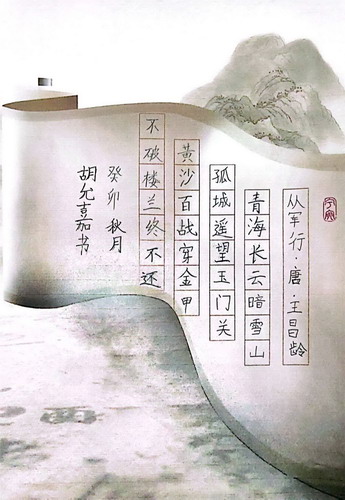 从军行·唐·王昌龄
青海长云暗雪山
孤城遥望玉门关
黄沙百战穿金甲
不破楼兰终不还
癸卯秋月
胡允嘉书